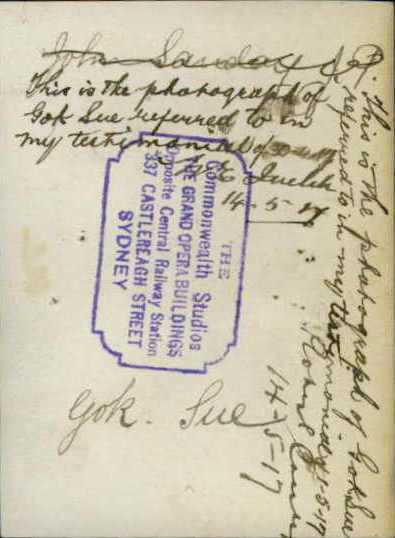 This is the photograph of
Gok Sue referred to in
my testimonial of
14-5-17
THE
Commonwealth Studios
THE GRAND OPERA BUILDINGS
Opposite Central Railway Station
337 CASTLEREAGH STREET
SYDNEY
Gok. Sue
14-5-17
This is the photograph of Gok Sue
referred to in my testimonial of 1-5-17